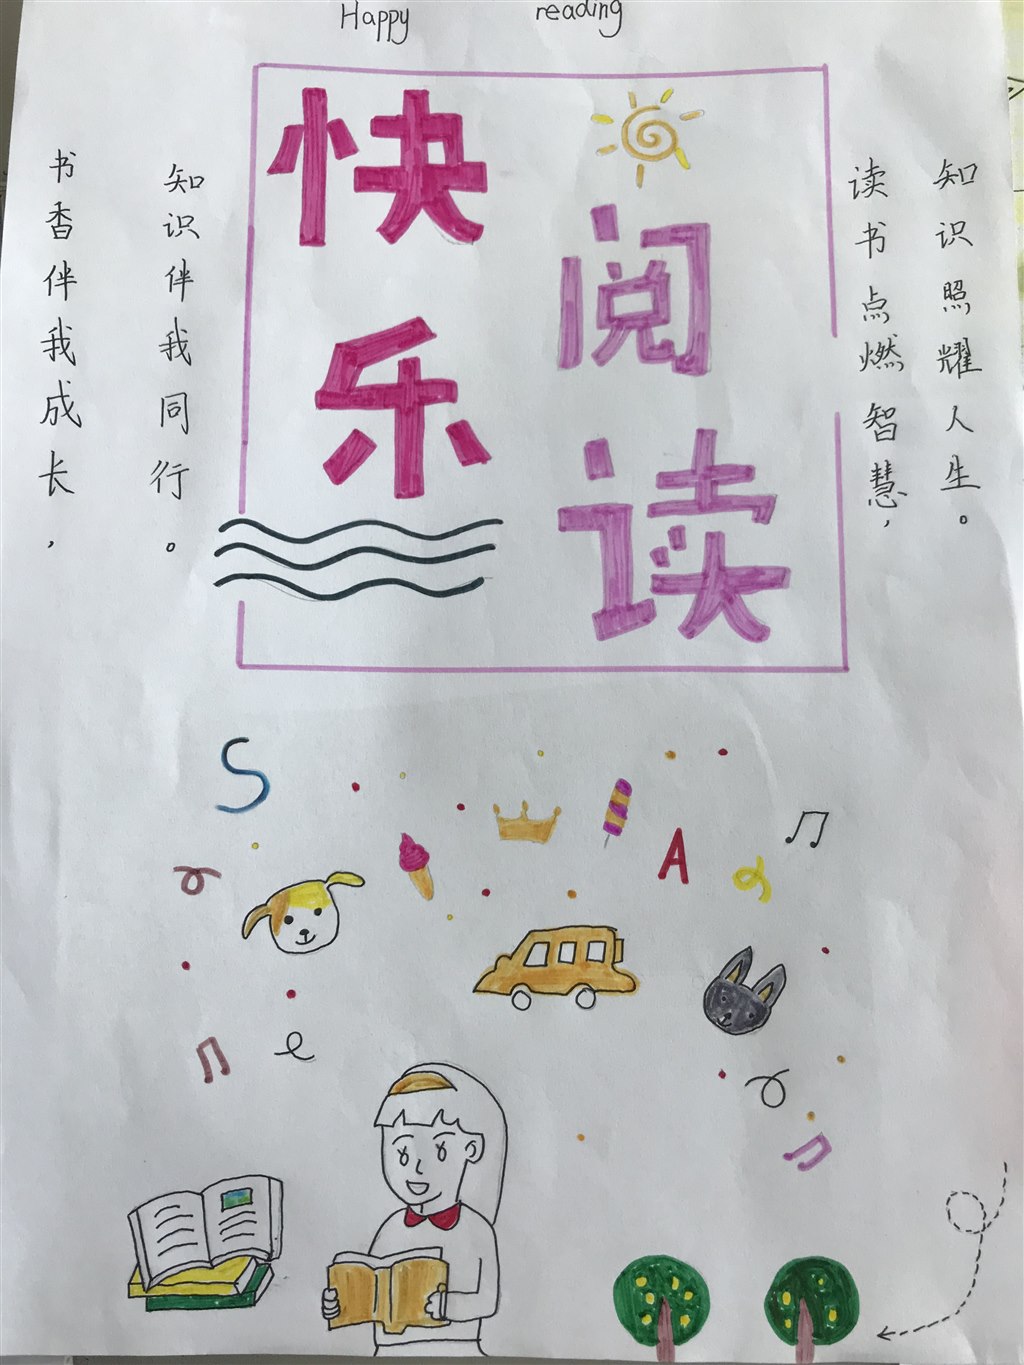 Happy reading
快乐
阅读
书香伴我成长，
知识伴我同行。
读书点燃智慧，
知识照耀人生。
S
A